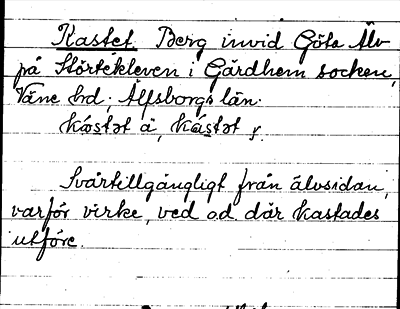 Kastet. Berg invid Göta Älv
på Störtekleven i Gärdhem socken,
Väne hd, Älfsborgs län.
kástət ä, kástət f.
Svårtillgängligt från älvsidan,
varför virke, ved od där kastades
utföre.